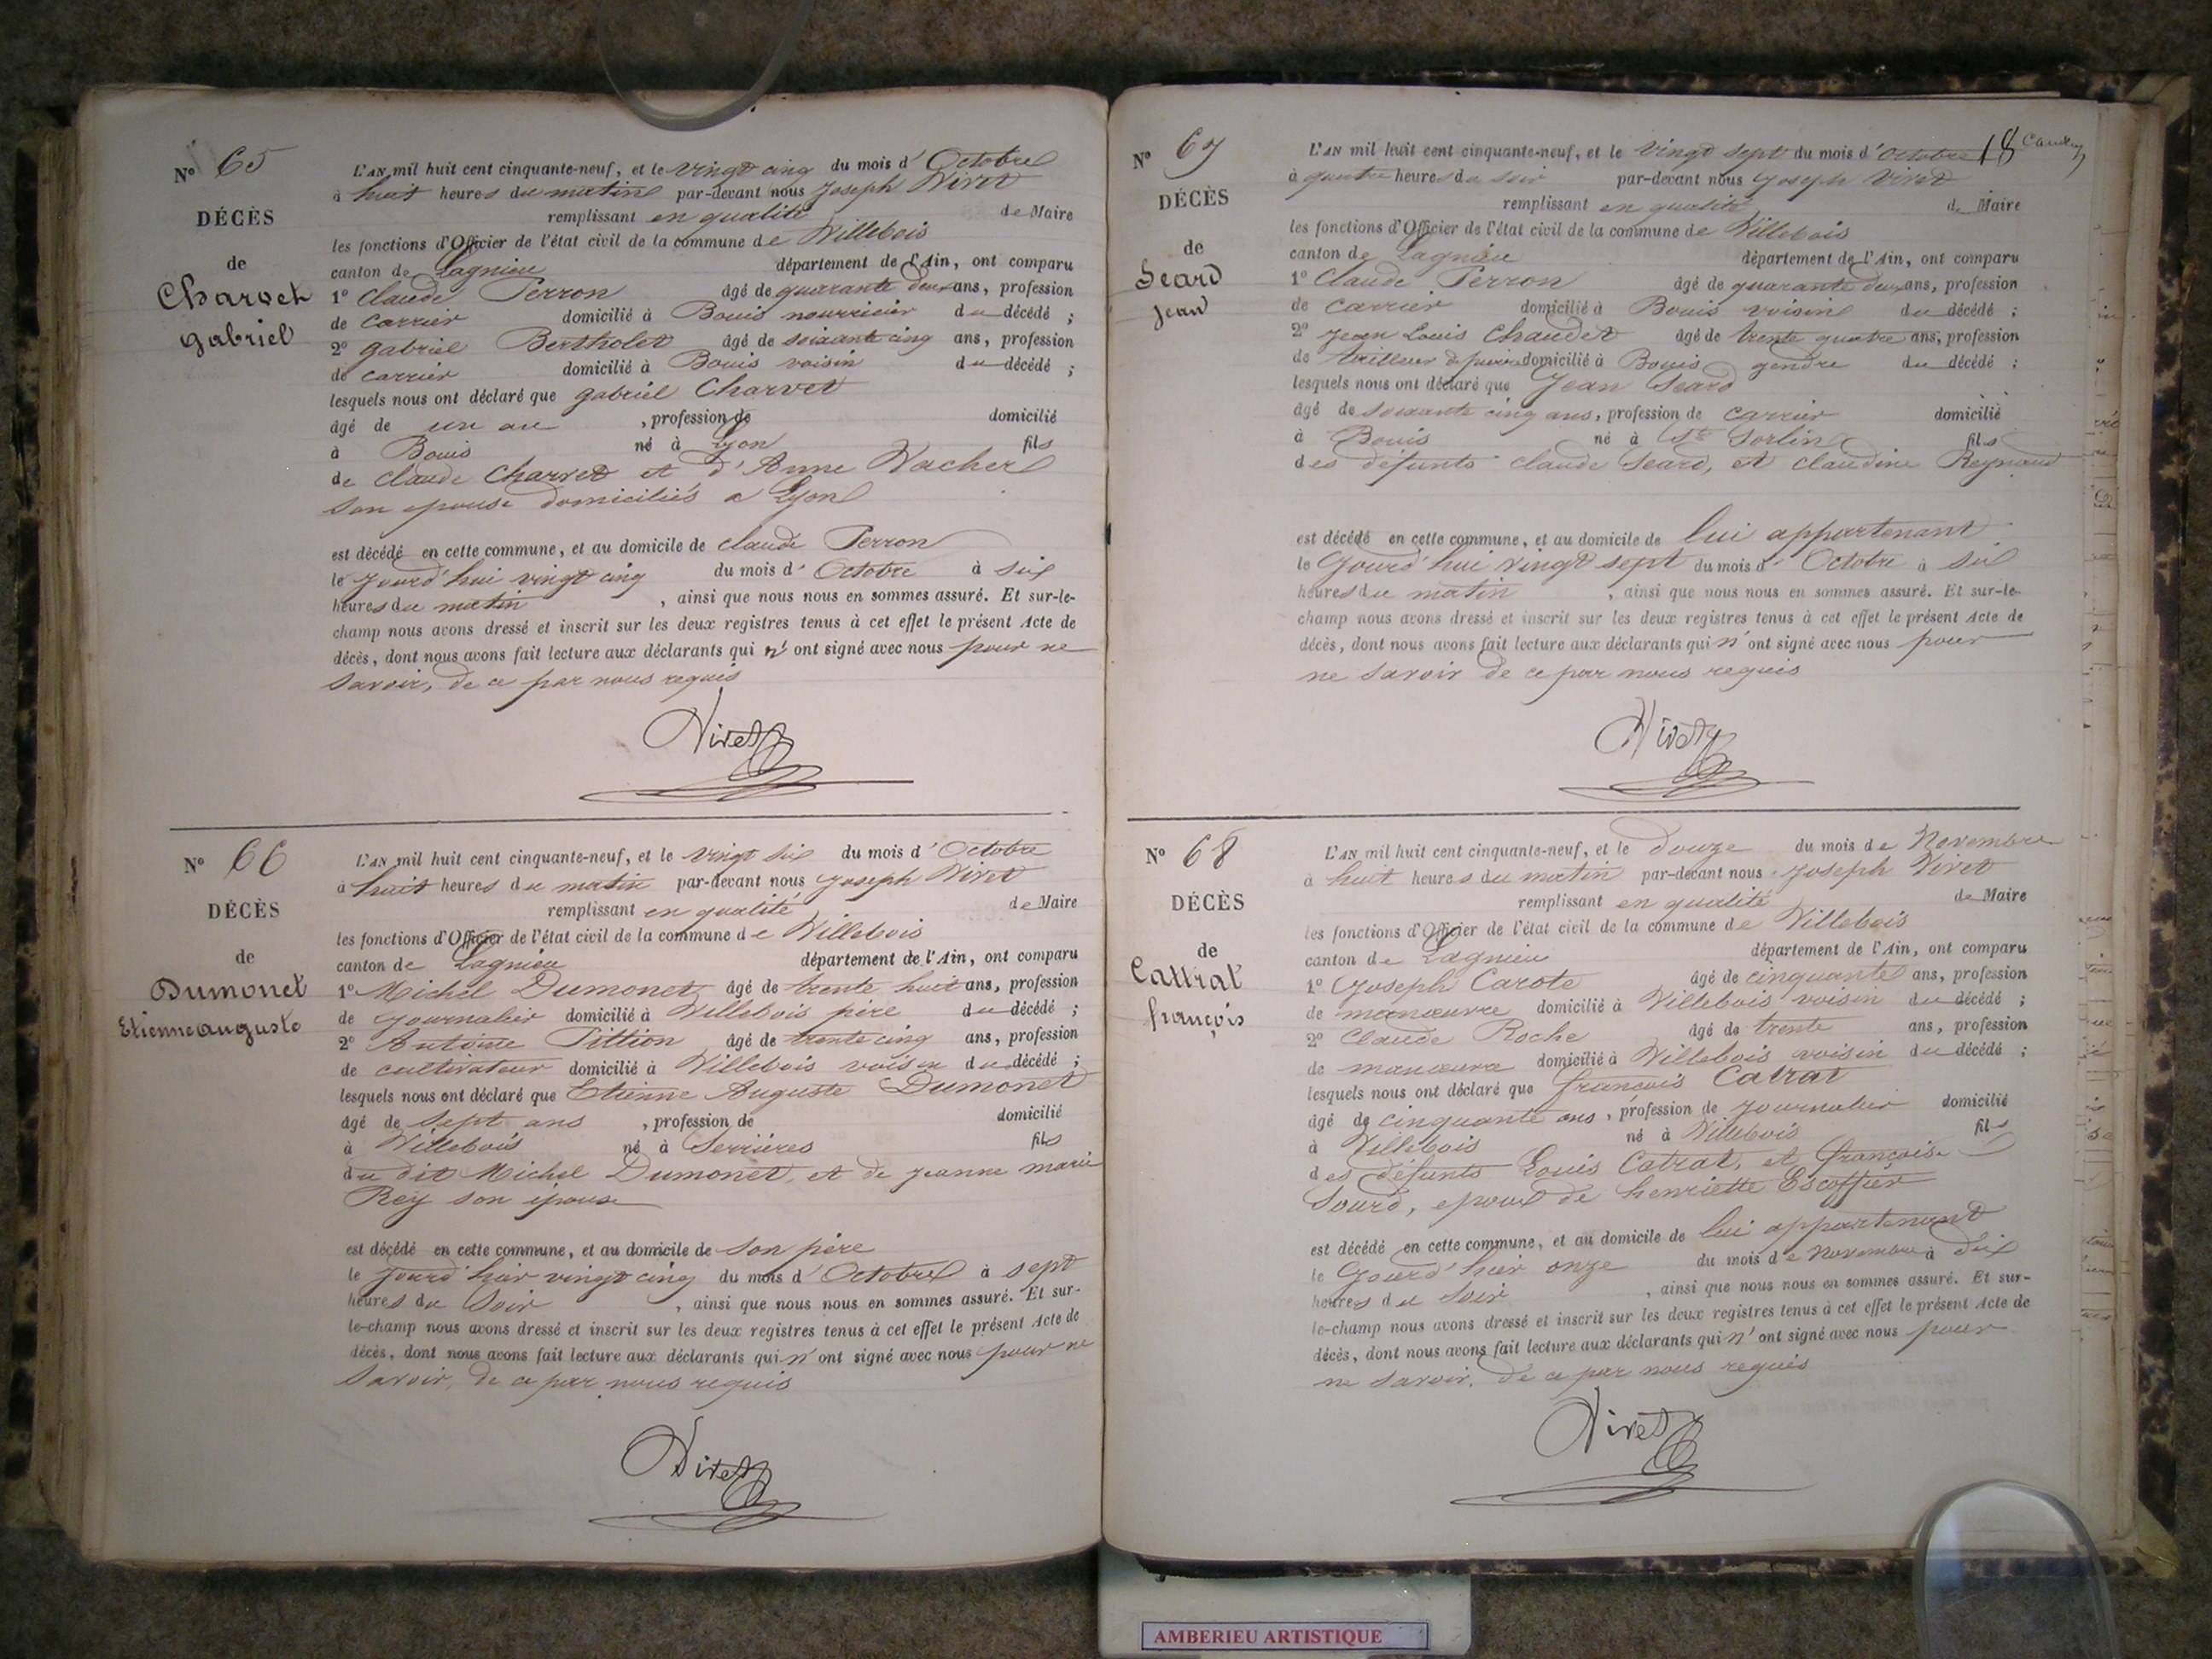 N° 65
DÉCÈS
de
Charvet
gabriel
L'AN mil huit cent cinquante-neuf, et le vingt cinq du mois d'Octobre
à huit heures du matin par-devant nous Joseph Vivet
remplissant en qualité de Maire
les fonctions d'Officier de l'état civil de la commune de Villebois
canton de Lagnieu département de l'Ain, ont comparu
1° Claude Perron âgé de quarante deux ans, profession
de carrier domicilié à Bouis nourricier du décédé ;
2° gabriel Bertholet âgé de soixante cinq ans, profession
de carrier domicilié à Bouis voisin du décédé ;
lesquels nous ont déclaré que gabriel Charvet
âgé de un an , profession de domicilié
à Bouis né à Lyon fils
de Claude Charvet et d'Anne Vacher
son epouse domiciliés a Lyon
est décédé en cette commune, et au domicile de claude Perron
le jourd'hui vingt cinq du mois d'Octobre à six
heures du matin , ainsi que nous nous en sommes assuré. Et sur-le-
champ nous avons dressé et inscrit sur les deux registres tenus à cet effet le présent Acte de
décès, dont nous avons fait lecture aux déclarants qui n'ont signé avec nous pour ne
savoir, de ce par nous requis
Vivet
N° 66
DÉCÈS
de
Dumonet
Etienne auguste
L'AN mil huit cent cinquante-neuf, et le vingt six du mois d'Octobre
à huit heures du matin par-devant nous Joseph Vivet
remplissant en qualité de Maire
les fonctions d'Officier de l'état civil de la commune de Villebois
canton de Lagnieu département de l'Ain, ont comparu
1° Michel Dumonet âgé de trente huit ans, profession
de journalier domicilié à Villebois père du décédé ;
2° Antoine Pittion âgé de trente cinq ans, profession
de cultivateur domicilié à Villebois voisin du décédé ;
lesquels nous ont déclaré que Etienne Auguste Dumonet
âgé de sept ans , profession de domicilié
à Villebois né à Serrières fils
du dit Michel Dumonet, et de jeanne marie
Rey son épouse
est décédé en cette commune, et au domicile de son père
le jourd'hier vingt cinq du mois d'Octobre à sept
heures du soir , ainsi que nous nous en sommes assuré. Et sur-
le-champ nous avons dressé et inscrit sur les deux registres tenus à cet effet le présent Acte de
décès, dont nous avons fait lecture aux déclarants qui n'ont signé avec nous pour ne
savoir, de ce par nous requis
Vivet
18
N° 67
DÉCÈS
de
Seard
jean
L'AN mil huit cent cinquante-neuf, et le vingt sept du mois d'Octobre
à quatre heures du soir par-devant nous Joseph Vivet
remplissant en qualité de Maire
les fonctions d'Officier de l'état civil de la commune de Villebois
canton de Lagnieu département de l'Ain, ont comparu
1° Claude Perron âgé de quarante deux ans, profession
de carrier domicilié à Bouis voisin du décédé ;
2° Jean Louis Chaudet âgé de trente quatre ans, profession
de tailleur de pierre domicilié à Bouis gendre du décédé ;
lesquels nous ont déclaré que Jean Seard
âgé de soixante cinq ans, profession de carrier domicilié
à Bouis né à St Sorlin fils
des défunts claude Seard, et claudine Reynaud
est décédé en cette commune, et au domicile de lui appartenant
le jourd'hui vingt sept du mois d'Octobre à six
heures du matin , ainsi que nous nous en sommes assuré. Et sur-le-
champ nous avons dressé et inscrit sur les deux registres tenus à cet effet le présent Acte de
décès, dont nous avons fait lecture aux déclarants qui n'ont signé avec nous pour
ne savoir de ce par nous requis
Vivet
N° 68
DÉCÈS
de
Cattrat
françois
L'AN mil huit cent cinquante-neuf, et le douze du mois de Novembre
à huit heures du matin par-devant nous Joseph Vivet
remplissant en qualité de Maire
les fonctions d'Officier de l'état civil de la commune de Villebois
canton de Lagnieu département de l'Ain, ont comparu
1° Joseph Carote âgé de cinquante ans, profession
de manœuvre domicilié à Villebois voisin du décédé ;
2° Claude Roche âgé de trente ans, profession
de manœuvre domicilié à Villebois voisin du décédé ;
lesquels nous ont déclaré que françois Catrat
âgé de cinquante ans, profession de journalier domicilié
à Villebois né à Villebois fils
des défunts Louis Catrat, et françoise
Sourd, epoux de henriette Escoffier
est décédé en cette commune, et au domicile de lui appartenant
le jourd'hier onze du mois de Novembre à dix
heures du soir , ainsi que nous nous en sommes assuré. Et sur-
le-champ nous avons dressé et inscrit sur les deux registres tenus à cet effet le présent Acte de
décès, dont nous avons fait lecture aux déclarants qui n'ont signé avec nous pour
ne savoir, de ce par nous requis
Vivet
AMBERIEU ARTISTIQUE